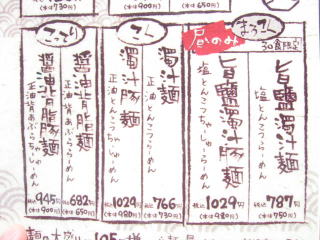 本730円)
(本900円)
(本650円)
昼のみ
30食限定
旨鹽濁汁麺
塩とんこつらーめん
税込787円
(本750円)
旨鹽濁汁豚麺
塩とんこつちゃーしゅーめん
税込1029円
(本980円)
こく
濁汁麺
正油とんこつらーめん
税込766円
(本730円)
濁汁豚麺
正油とんこつちゃーしゅーめん
税込1029円
(本980円)
こってり
醤油背脂麺
正油背あぶららーめん
税込682円
(本650円)
醤油背脂豚麺
正油背あぶらちゃーしゅーめん
税込945円
(本900円)
麺の大盛り